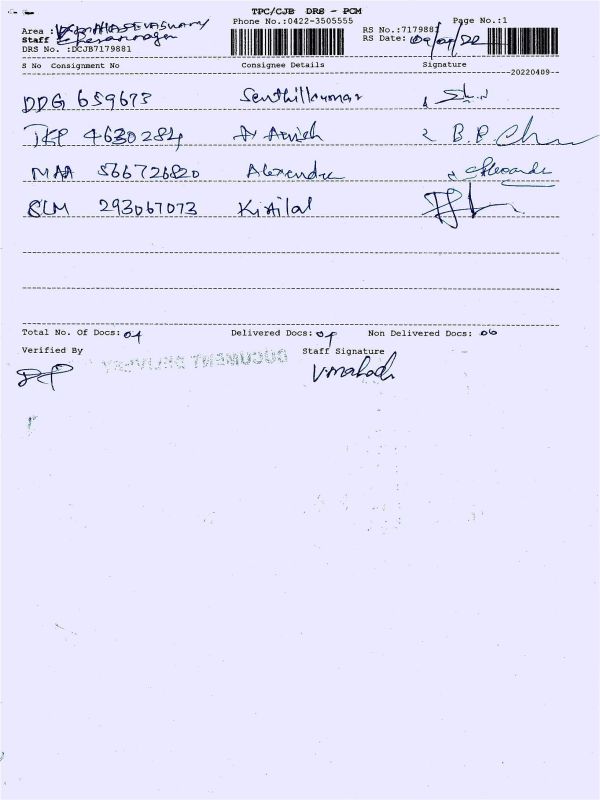 TPC/CJB DRS - PCM
Phone No.:0422-3505555 Page No.:1
Area :
Staff :
RS No.:7179881
RS Date: 09/04/22
DRS No. :DCJB7179881
S No Consignment No Consignee Details Signature
20220409
DDG 659673 Senthilkumar
TKP 4630284
MAA 566726820 Alexander
SLM 293067073 Kirilal
Total No. Of Docs: 04 Delivered Docs: 04 Non Delivered Docs: 00
Verified By Staff Signature
DOCUMENT DELIVERY